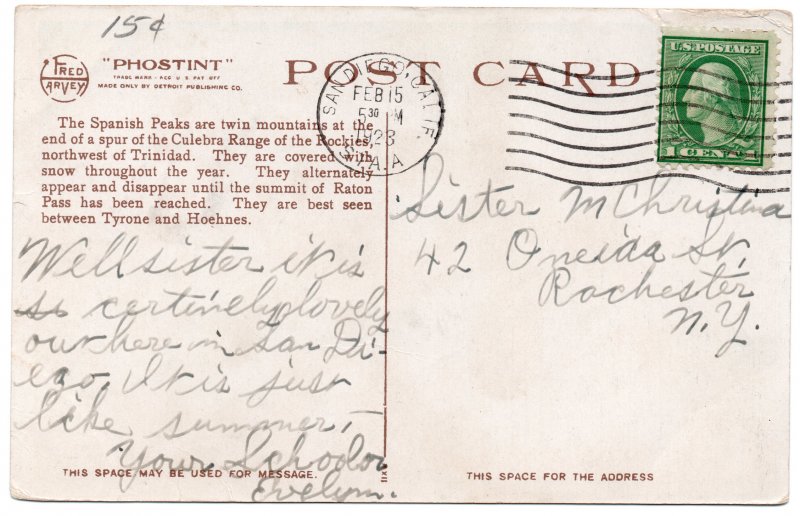 15¢
FRED
HARVEY
"PHOSTINT"
TRADE MARK - REG U S PAT OFF
MADE ONLY BY DETROIT PUBLISHING CO.
POST CARD
SAN DIEGO, CALIF.
FEB 15
5 30 M
1923
U.S. POSTAGE
1 CENT 1
The Spanish Peaks are twin mountains at the
end of a spur of the Culebra Range of the Rockies,
northwest of Trinidad. They are covered with
snow throughout the year. They alternately
appear and disappear until the summit of Raton
Pass has been reached. They are best seen
between Tyrone and Hoehnes.
Well sister it is
so certinely lovely
out here in San Di-
ego. It is just
like summer,—
Your Schoolor
Evelyn.
Sister M Christina
42 Oneida St.
Rochester
N.Y.
THIS SPACE MAY BE USED FOR MESSAGE.
THIS SPACE FOR THE ADDRESS